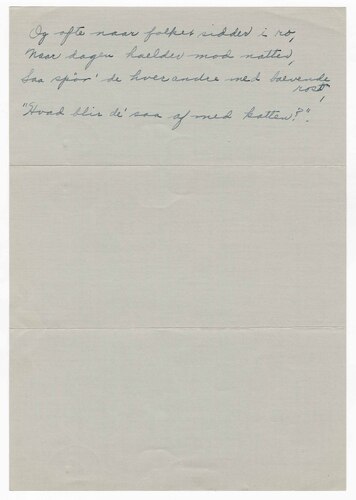 Og ofte naar folket sidder i ro,
Naar dagen haelder mod natten,
Saa spör' de hverandre med baevende
röst,
"Hvad blir de' saa af med katten?".